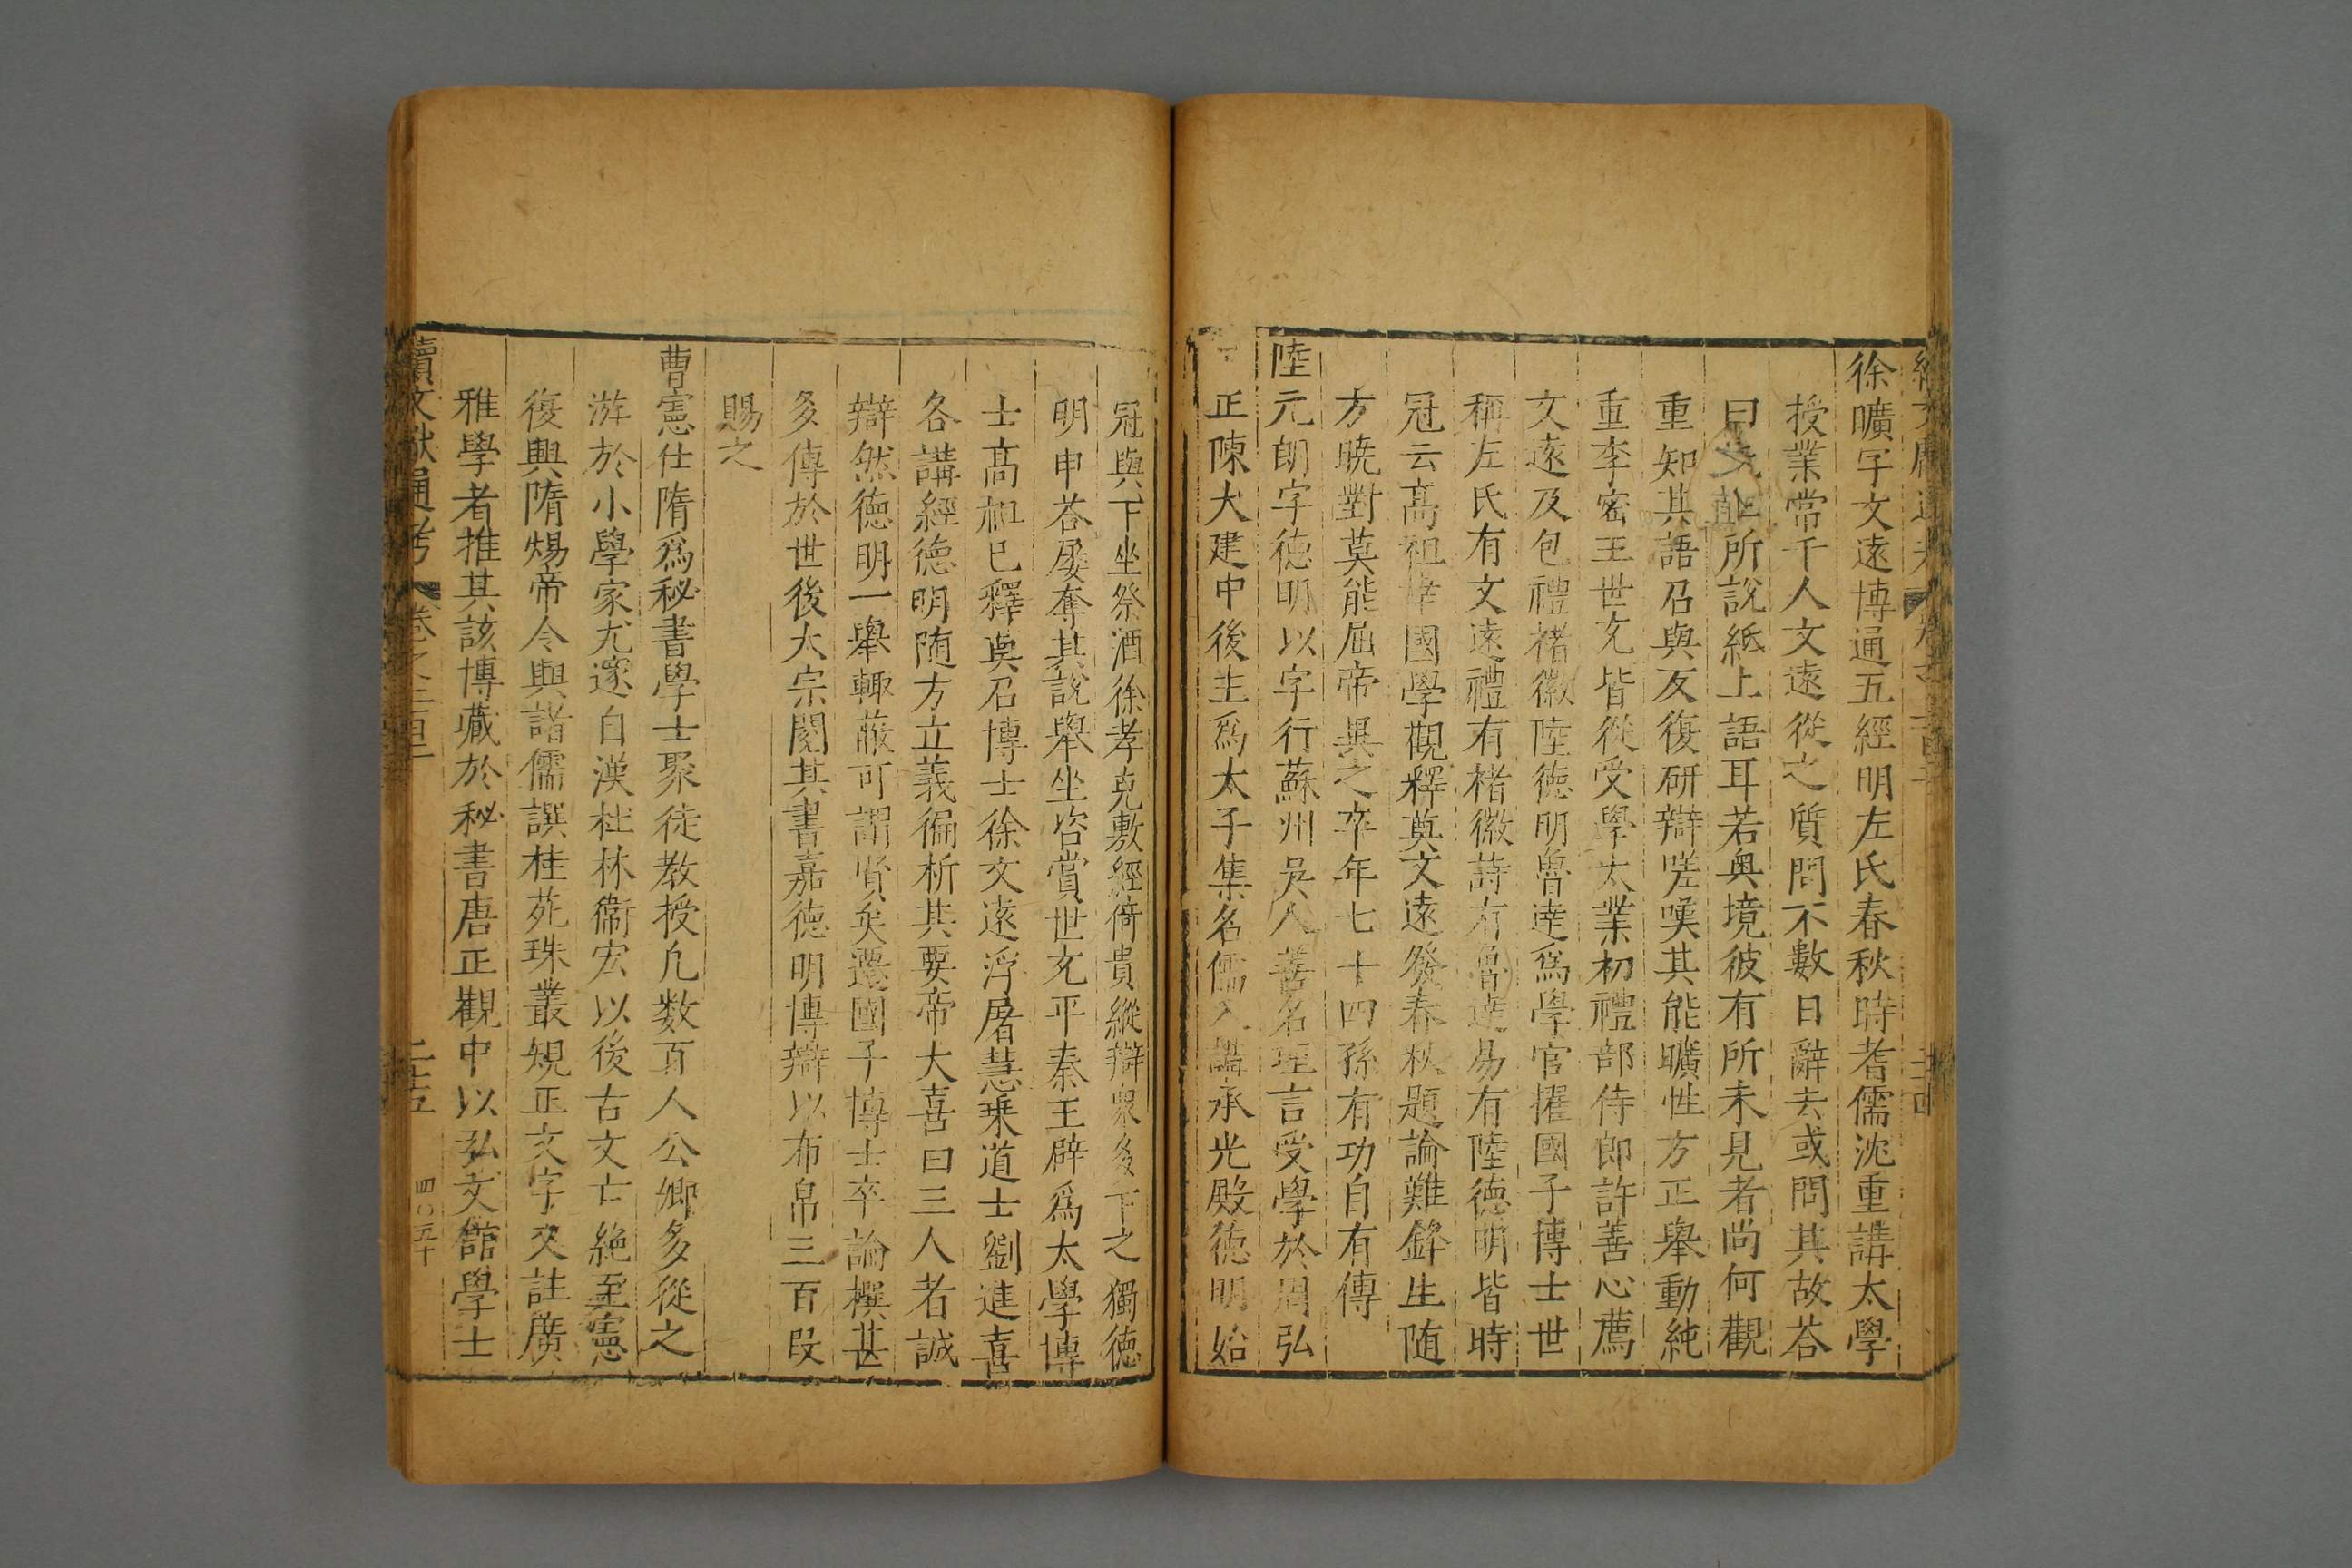 徐曠字文遠博通五經明左氏春秋時耆儒沈重講太學
授業常千人文遠從之質問不數日辭去或問其故荅
曰先所說紙上語耳若奥境彼有所未見者尚何觀
重知其語召與反復研辯嗟嘆其能曠性方正舉動純
重李密王世充皆從受學大業初禮部侍郎許善心薦
文遠及包禮褚徽陸徳明魯達爲學官擢國子博士世
稱左氏有文遠禮有褚徽詩有魯達易有陸徳明皆時
冠云髙祖幸國學觀釋奠文遠發春秋題論難鋒生随
方曉對莫能屈帝異之卒年七十四孫有功自有傳
陸元朗字徳明以字行蘇州吳人善名理言受學於周弘
正陳大建中後主爲太子集名儒入講承光殿徳明始
冠與下坐祭酒徐孝克敷經倚貴縱辯衆多下之獨徳
明申荅屡奪其說舉坐咨賞世充平秦王辟爲太學博
士髙祖已釋奠召博士徐文遠浮屠慧乗道士劉進喜
各講經徳明随方立義徧析其要帝大喜曰三人者誠
辯然徳明一舉輒蔽可謂賢矣遷國子博士卒論撰甚
多傳於世後太宗閱其書嘉徳明博辯以布帛三百段
賜之
曹憲仕隋爲秘書學士聚徒教授凡数百人公卿多從之
游於小學家尤邃自漢杜林衞宏以後古文亡絶至憲
復興隋煬帝令與諸儒譔桂苑珠叢規正文字又註廣
雅學者推其該博藏於秘書唐正觀中以弘文館學士
續文獻通考 卷之二百 二十五 四〇五十